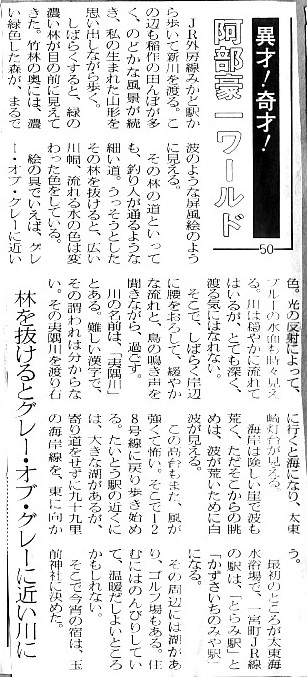 異才!・奇才!
阿部豪一ワールド
50
林を抜けるとグレー・オブ・グレーに近い川に
JR外房線みかど駅か
ら歩いて新川を渡る。こ
の辺も稲作の田んぼが多
く、のどかな風景が続
き、私の生まれた山形を
思い出しながら歩く。
しばらくすると、緑の
濃い林が目の前に見えて
きた。竹林の奥には、濃
い緑色した森が、まるで
波のような屏風絵のよう
に見える。
その林の道といって
も、釣り人が通るような
細い道。うっそうとした
その林を抜けると、広い
川幅、流れる水の色は変
わった色をしている。
絵の具でいえば、グレ
ー・オブ・グレーに近い
色。光の反射によって、
ブルーの水面も時々見え
る。川は穏やかに流れて
はいるが、とても深く、
渡る気にはなれない。
そこで、しばらく岸辺
に腰をおろして、緩やか
な流れと、鳥の鳴き声を
聞きながら、過ごす。
川の名前は、「夷隅川」
とある。難しい漢字で、
その謂われは分からな
い。その夷隅川を渡り右
に行くと海になり、太東
崎灯台が見える。
海岸は険しい崖で波も
荒く、ただそこからの眺
めは、波が荒いために白
波が見える。
この高台もまた、風が
強くて怖い。そこで12
8号線に戻り歩き始め
る。たいとう駅の近くに
は、大きな湖があるが、
寄り道をせずに九十九里
の海岸線を、東に向か
う。
最初のところが太東海
水浴場で、一宮町JR線
の駅は、「とらみ駅」と
「かずさいちのみや駅」
になる。
その周辺には湖があ
り、ゴルフ場もある。住
むにはのんびりしてい
て、温暖だしよいところ
かもしれない。
そこで今宵の宿は、玉
前神社に決めた。